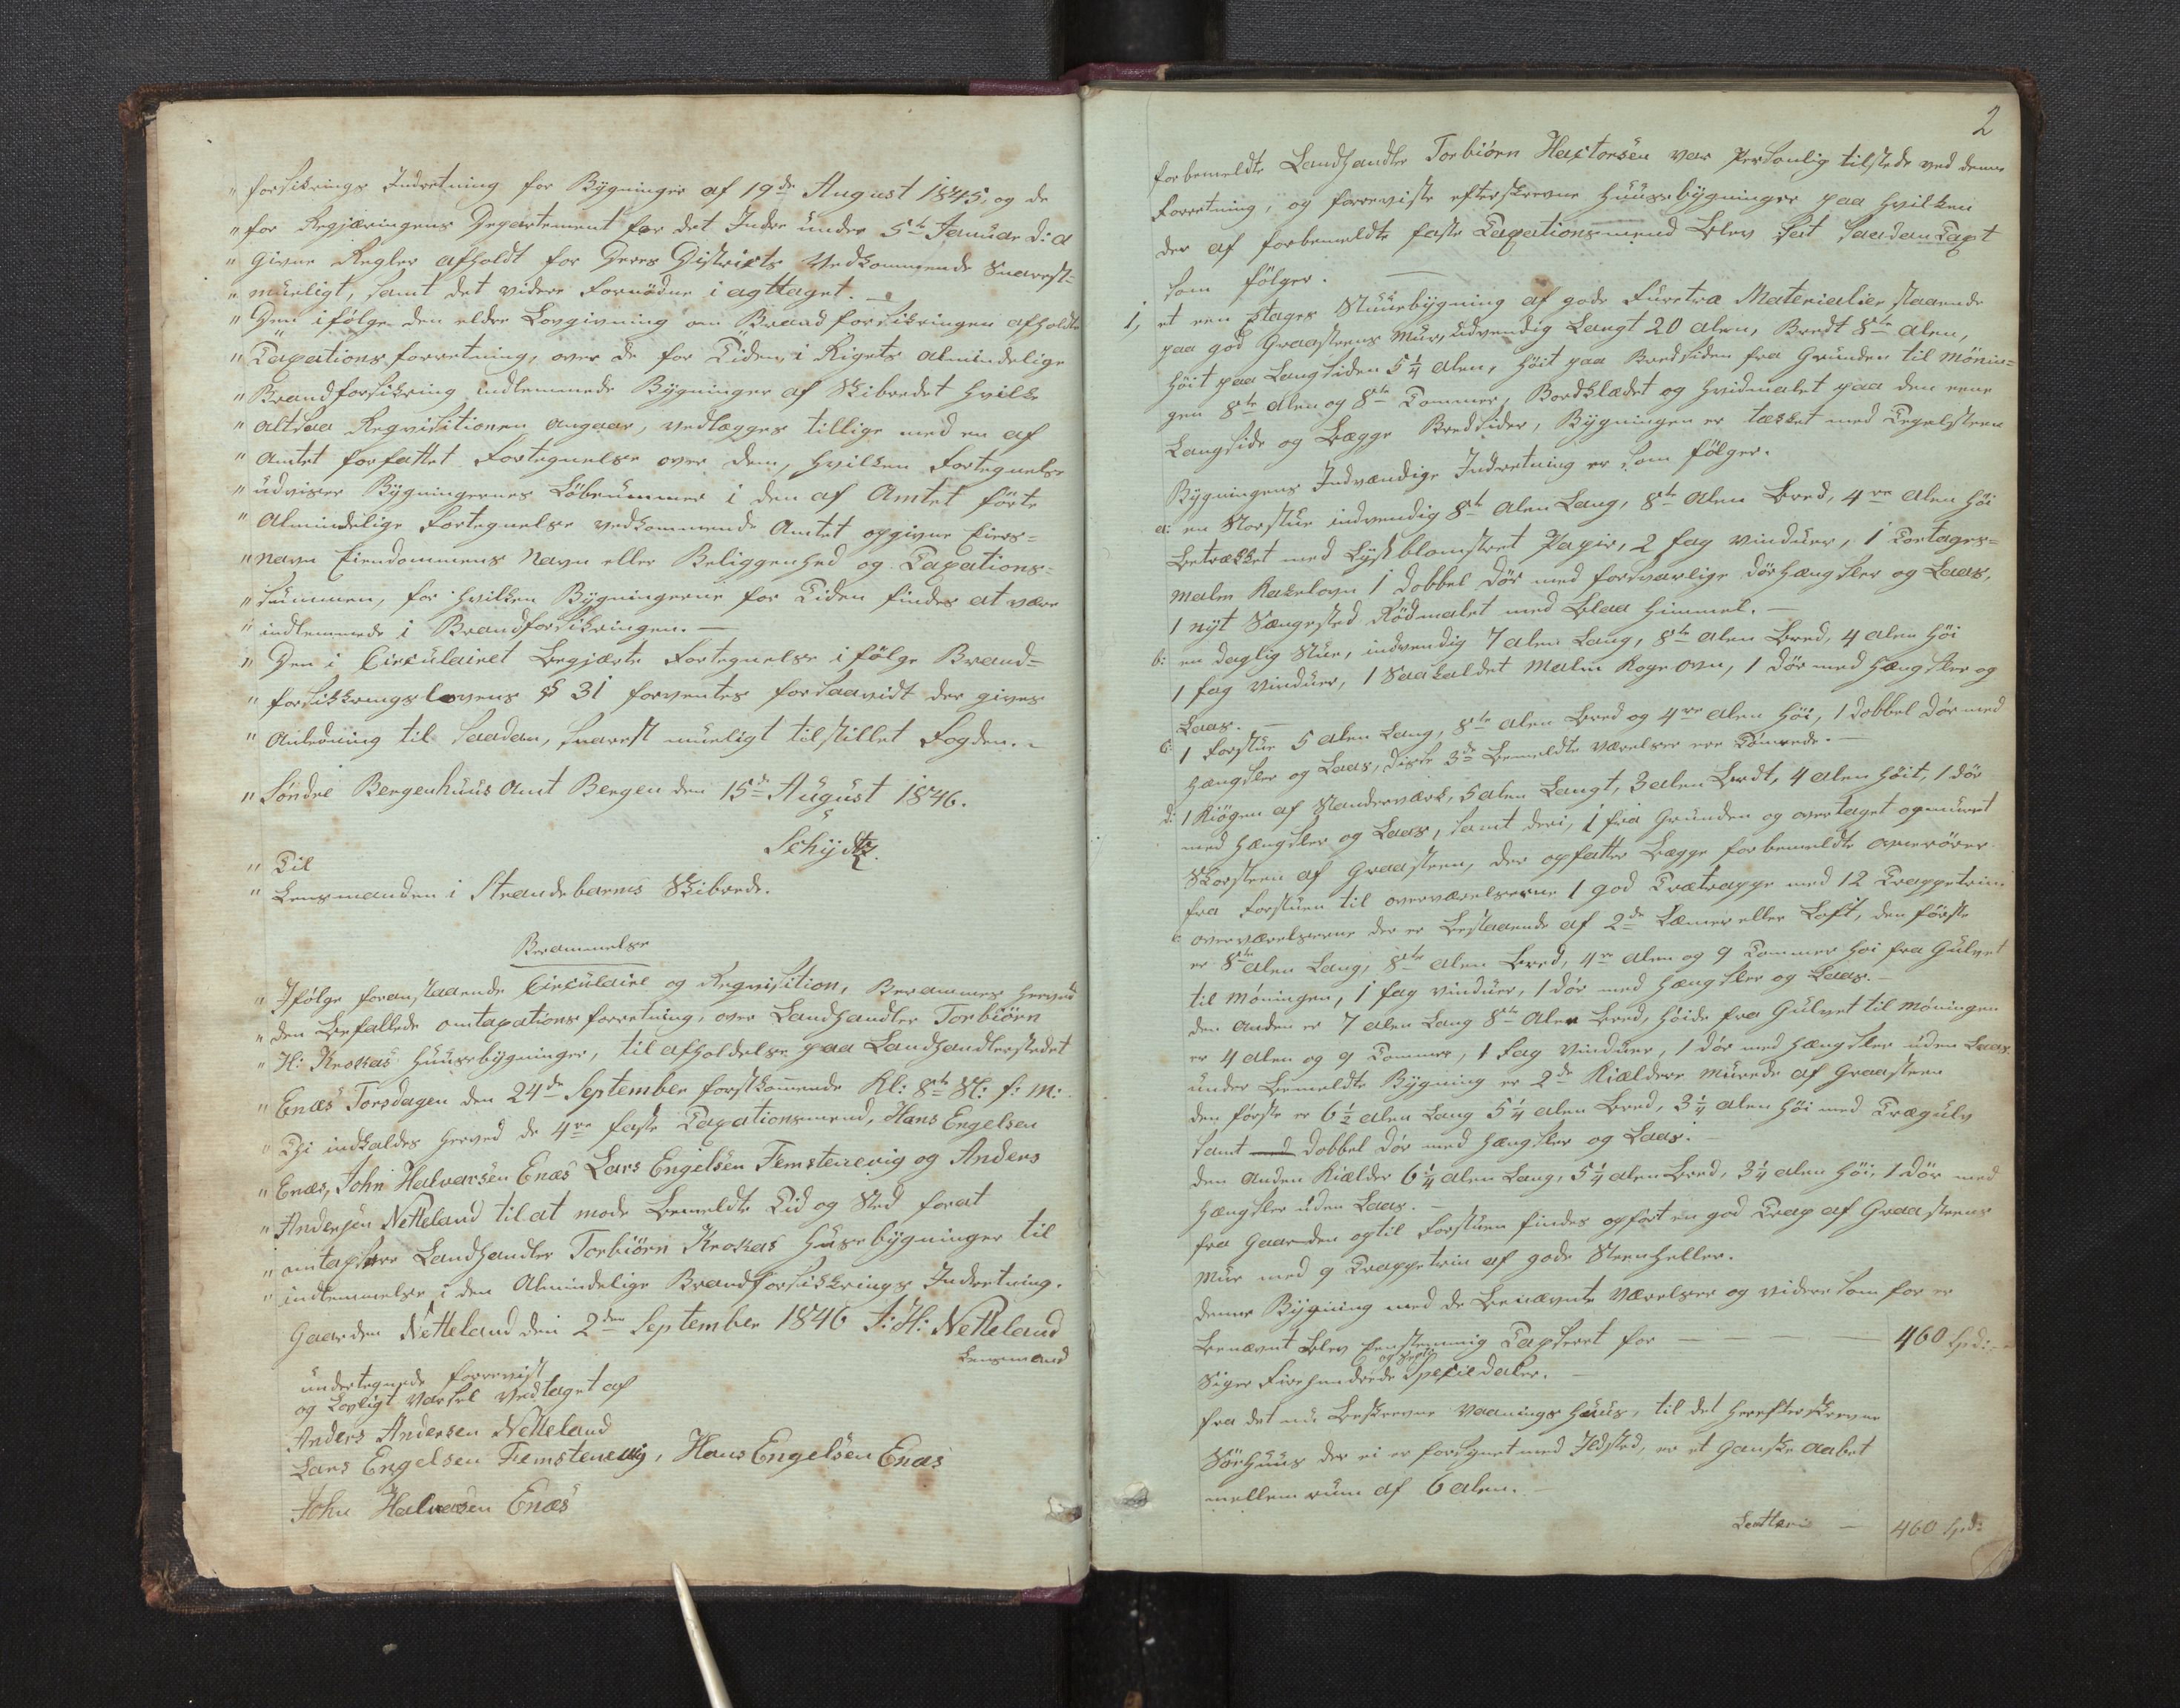 " forsikrings Indretning for Bygninger af 19de August 1845, og de
" for Regjæringens Departement for det Indre under 5te Januar d: A
" Givne Regler afholdt for Deres Districts Vedkommende Snarest-
" mueligt, samt det videre fornødne iagttaget. —
" Den ifølge den eldre Lovgivning om Brandforsikringen afholdte
" Taxations forretning, over de for Tiden i Rigets almindelige
" Brandforsikring indlemmede Bygninger af Skibredet hvilke
" altsaa Reqvisitionen angaar, vedlægges tillige med en af
" Amtet forfattet Fortegnelse over dem, hvilken Fortegnelse
" udviser Bygningernes Løbenummer i den af Amtet førte
" Almindelige Fortegnelse vedkommende Amtet opgivne Eiers-
" navn Eiendommens Navn eller Beliggenhed og Taxations-
" summen, for hvilken Bygningerne for Tiden findes at være
" indlemmede i Brandforsikringen. —
" Den i Circulairet Begjærte Fortegnelse ifølge Brand-
" forsikkringslovens § 31 forventes forsaavidt der gives
" Anledning til saadan, snarest mueligt tilstillet Fogden. -
" Søndre Bergenhuus Amt Bergen den 15de August 1846.
Schydtz.
" Til
" Lensmanden i Strandebarms Skibrede.
Berammelse
" Ifølge foranstaaende Circulaire og Reqvisition, Berammes herved
" den Befallede omtaxationsforretning, over Landhandler Torbiörn
" H: Krokæs Huusebygninger, til afholdelse paa Landhandlerstedet
" Enæs Torsdagen den 24de September førstkommende Kl: 8te Sl: f: M:
" Thi indkaldes herved de 4re faste Taxationsmend, Hans Engelsen
" Enæs, John Halvorsen Enæs Lars Engelsen Femstenevig og Anders
" Andersen Netteland til at møde Bemeldte Tid og Sted for at
" omtaxere Landhandler Torbiörn Krokæs Husebygninger til
" indlemmelse i den Almindelige Brandforsikkrings Indretning.
Gaarden Netteland den 2den September 1846 A: H: Netteland
Lensmand
undertegnede forevist
og Lovligt Varsel Vedtaget af
Anders Andersen Netteland
Lars Engelsen Femstenevig, Hans Engelsen Enæs
John Halvorsen Enæs
2
forbemeldte Landhandler Torbiörn Hactorsen var Personlig tilstede ved denne
Forretning, og foreviste efterskrevne Huusebygninger paa hvilken
der af forbemeldte faste Taxationsmend Blev sat saadan Taxt
som følger. —
1, et een Etages Stuuebygning af gode Furetræ Materialier staaende
paa god Graasteens Muur, udvendig Langt 20 Alen, Bredt 8te Alen,
høit paa Langsiden 5 1/4 Alen, høit paa Bredsiden fra Grunden til Mønin-
gen 8te Alen og 8te Tommer, Bordklædet og hvidmalet paa den eene
Langside og Begge Bredsider, Bygningen er tækket med Tegelsteen
Bygningens Indvændige Indretning er som følger.
a: en Storstue indvendig 8te Alen Lang, 8te Alen Bred, 4re Alen høi
Betrækket med Lyst blomstret Papir, 2 fag Vinduer, 1 Toetages-
malm Kakelovn 1 dobbel dør med forsvarlige dørhængsler og Laas,
1 nyt Sængested Rødmalet med Blaa Himmel. —
b: en daglig Stue, indvendig 7 Alen Lang, 8te Alen Bred, 4 Alen høi
1 fag Vinduer, 1 Saakaldet Malm Koge Ovn, 1 dør med Hængsler og
Laas. —
c: 1 Forstue 5 Alen Lang, 8te Alen Bred og 4re Alen høi, 1 dobbel dør med
hængsler og Laas, disse 3de Bemeldte Værelser ere Tømrede. —
d: 1 Kiøgen af Standerværk, 5 Alen Langt, 3 Alen Bredt, 4 Alen høit, 1 dør
med hængsler og Laas, samt deri, 1 fra Grunden og over taget opmuret
Skorsteen af Graasteen, der opfatter Begge forbemeldte Ovnerører
fra Forstuen til Overværelserne 1 god Trætrappe med 12 Trappetrin.
e Overværelserne der er Bestaaende af 2de Læmer eller Loft, den første
er 8te Alen Lang, 8te Alen Bred, 4re Alen og 9 Tommer høi fra Gulvet
til Møningen, 1 fag Vinduer, 1 dør med hængsler og Laas. —
den Anden er 7 Alen Lang 8te Alen Bred, høide fra Gulvet til Møningen
er 4 Alen og 9 Tommer, 1 fag Vinduer, 1 dør med hængsler uden Laas
under Bemeldte Bygning er 2de Kieldere Murede af Graasteen
den første er 6 1/2 Alen Lang 5 1/4 Alen Bred, 3 1/4 Alen høi med Trægulv
samt dobbel dør med hængsler og Laas. —
den Anden Kielder 6 1/4 Alen Lang, 5 1/4 Alen Bred, 3 1/4 Alen høi, 1 dør med
hængsler uden Laas. —
fra Gaarden op til Forstuen findes opført en god Trap af Graasteens
Mur med 9 Trappetrin af gode Steenheller.
denne Bygning med de Benævnte Værelser og videre som før er
Benævnt Blev Eenstemmig Taxseret for — — — 460 Spd:
Siger Firehundrede og Sexti Specie daler. —
fra det nu Beskrevne Vaanings Huus, til det herefter skrevne
Søe Huus der ei er forsynet med Ildsted, er et Ganske Aabet
mellem rum af 6 Alen. —
Latteri — 460 Spd: